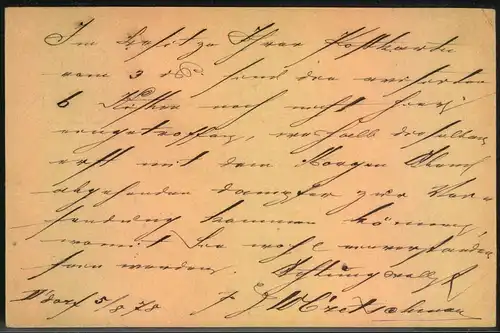 Im Besitze Ihrer Postkarte
vom 3 ds. sind die avisirten
6 Kisten noch nicht hier
eingetroffen, weshalb dieselben
erst mit dem Morgen Abend
abgehenden Dampfer zur Ver-
sendung kommen können,
womit Sie wohl einverstanden
sein werden. Achtungsvollst
D'dorf 5/8 78